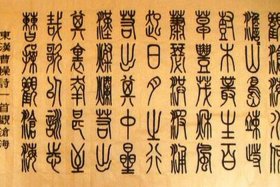 澹山島竦峙
樹木叢生百
草豐茂秋風
蕭瑟洪波涌
起日月之行
若出其中星
漢燦爛若出
其裏幸甚至
哉歌以詠志
曹操觀滄海
東漢曹操詩一首觀滄海